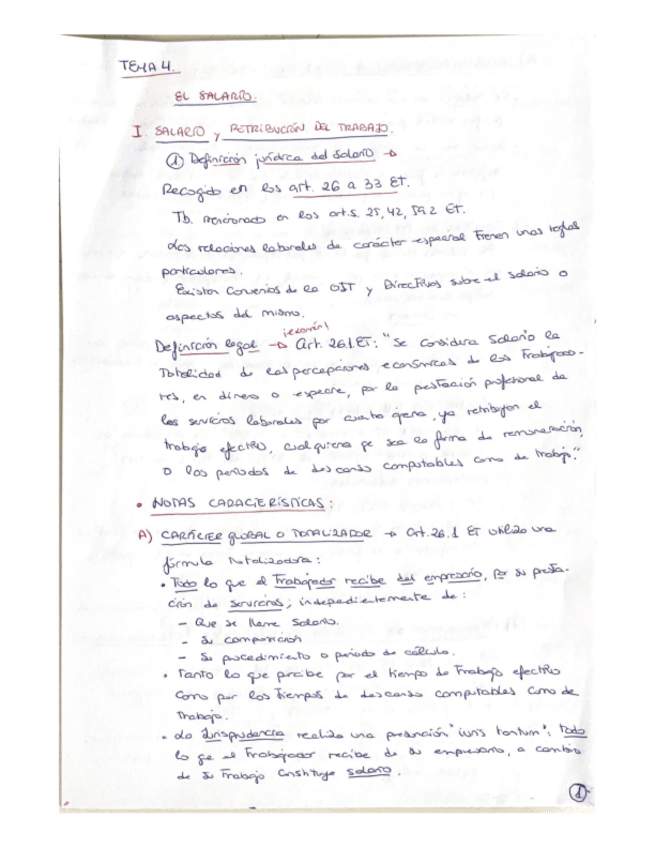 TEMA 4.
EL SALARIO.
I SALARIO y RETRIBUCIÓN DEL TRABAJO.
① Definición jurídica del Salario →
Recogido en los art. 26 a 33 ET.
Tb. mencionado en los arts. 25, 42, 59.2 ET.
Las relaciones laborales de carácter especial tienen unas reglas
particulares.
Existen Convenios de la OIT y Directivas sobre el salario o
aspectos del mismo.
¡examen!
Definición legal → Art. 26.1 ET: "Se considera Salario la
Totalidad de las percepciones económicas de los Trabajado-
res, en dinero o especie, por la prestación profesional de
los servicios laborales por cuenta ajena, ya retribuyan el
trabajo efectivo, cualquiera que sea la forma de remuneración,
o los periodos de descanso computables como de trabajo."
• NOTAS CARACTERÍSTICAS:
A) CARÁCTER GLOBAL O TOTALIZADOR → Art. 26.1 ET utiliza una
fórmula totalizadora:
• Todo lo que el Trabajador recibe del empresario, por su presta-
ción de servicios; independientemente de:
- Que se llame Salario.
- Su composición
- Su procedimiento o periodo de cálculo.
• Tanto lo que percibe por el tiempo de Trabajo efectivo
como por los Tiempos de descanso computables como de
Trabajo.
• La Jurisprudencia realiza una presunción "iuris tantum": Todo
lo qe el Trabajador recibe de su empresario, a cambio
de su Trabajo Constituye salario.
①